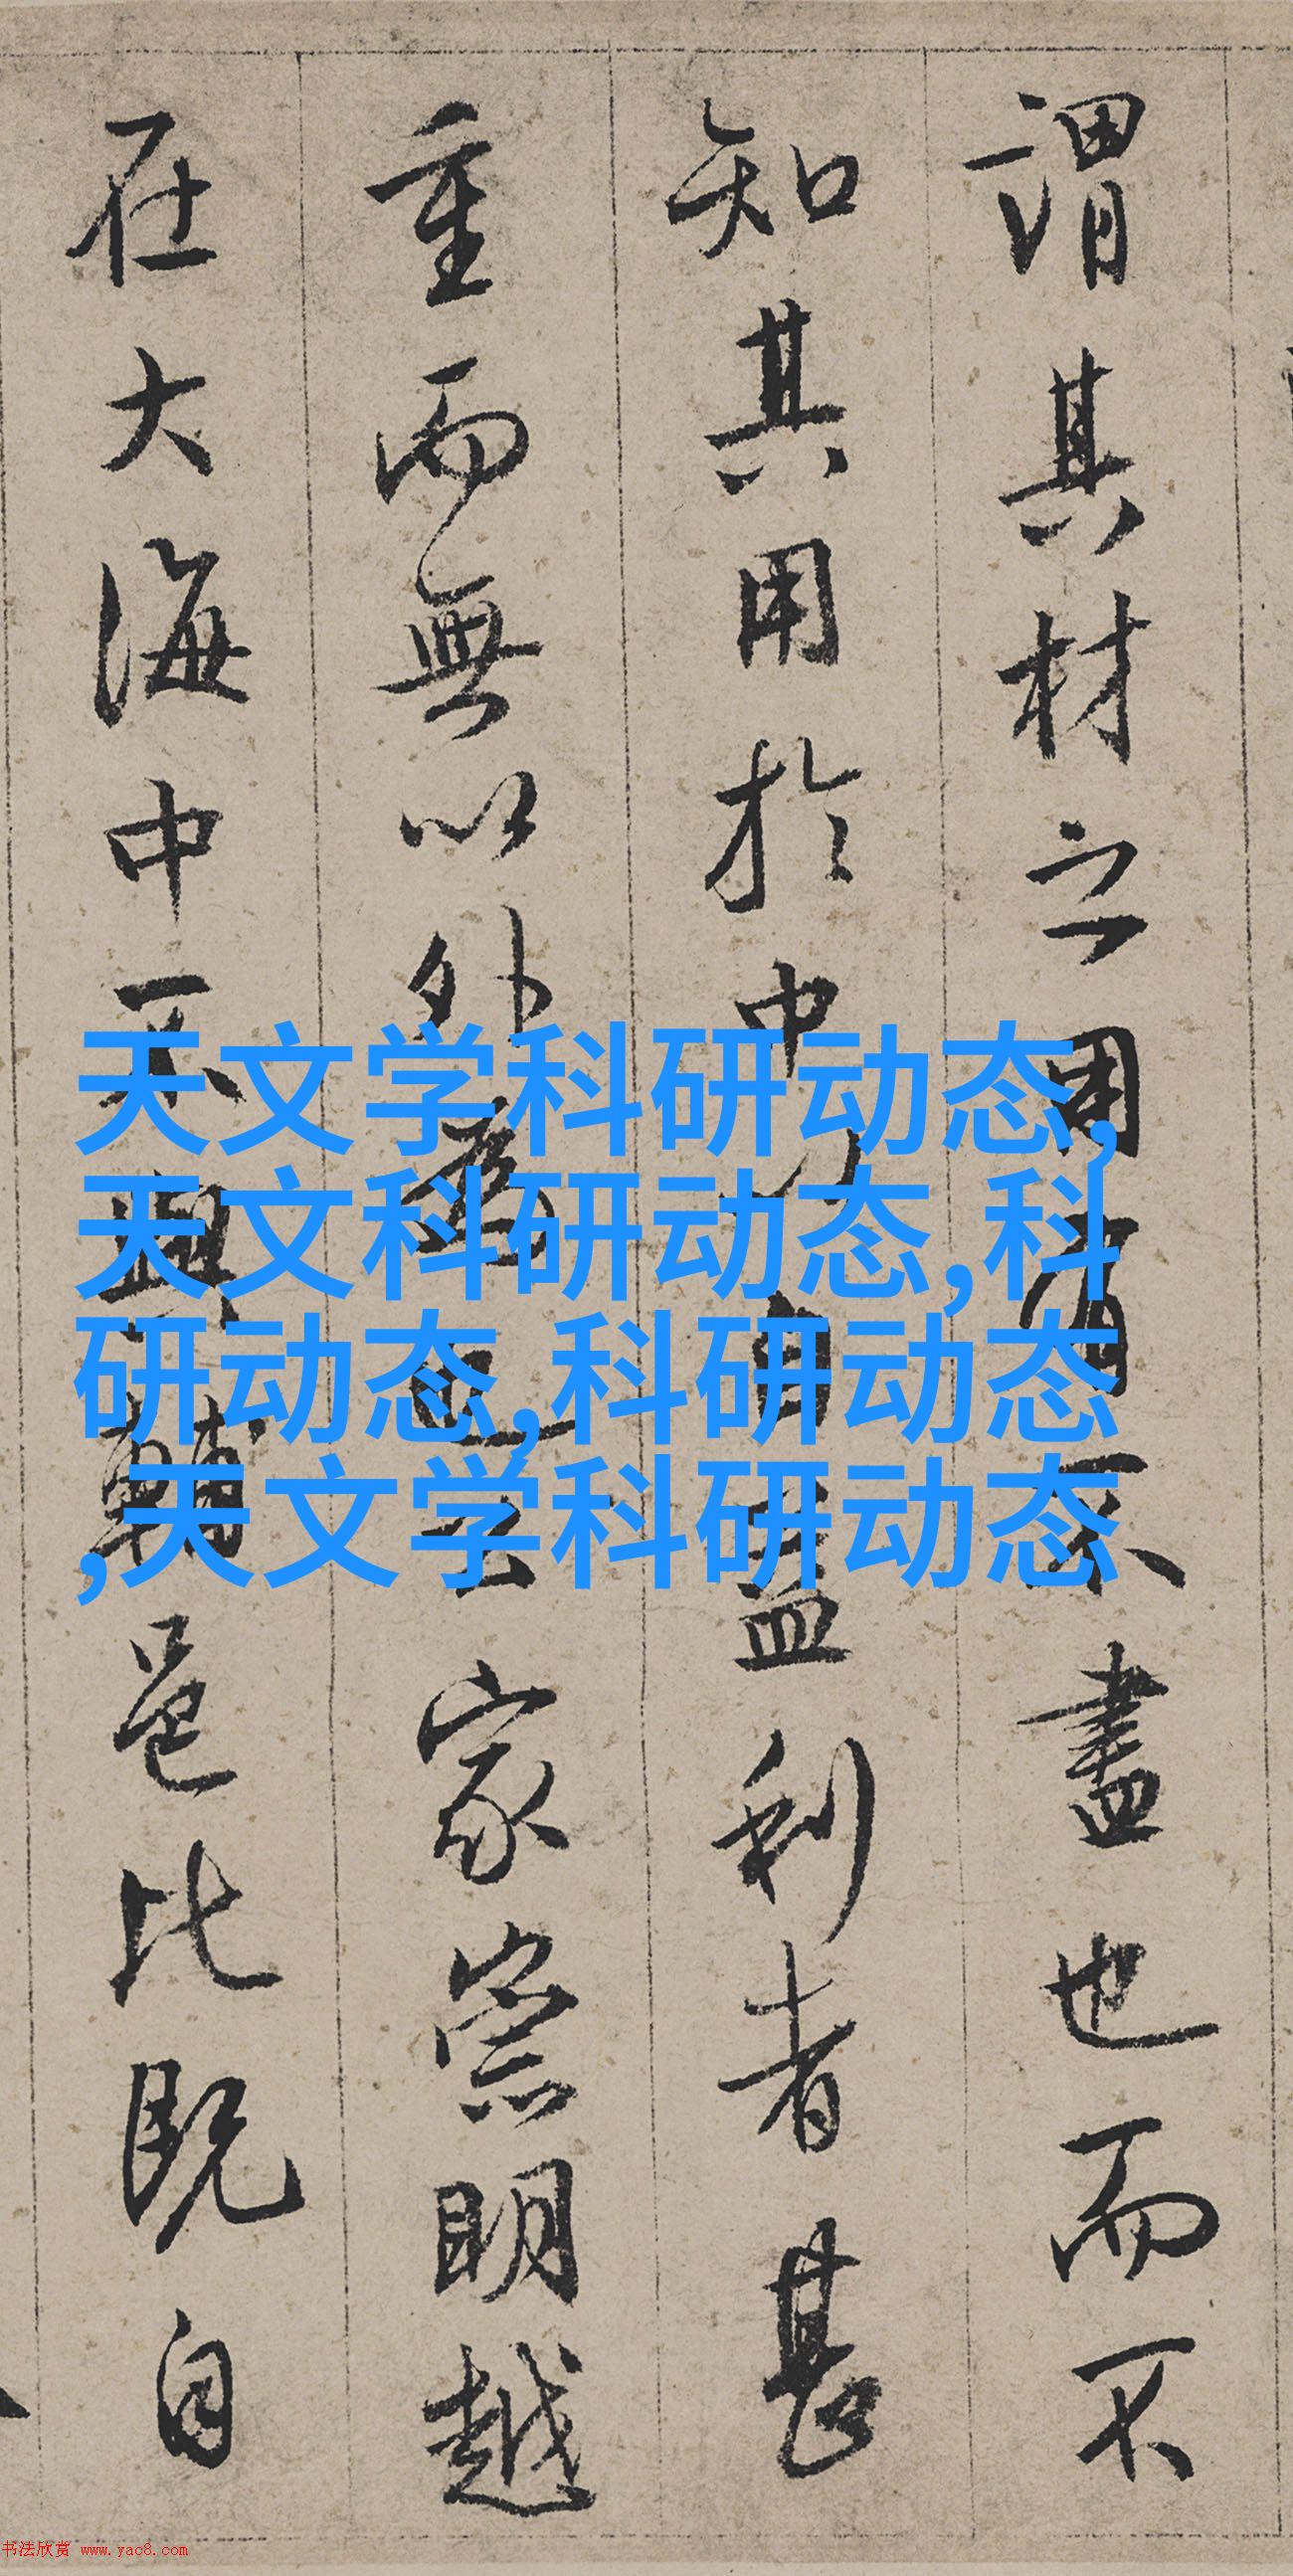 謂其材之用有不盡也而不
知其用於中力自益利者甚
重而無以外為也云家崇明越
在大海中不與輔邑比既自
天文学科研动态,
天文科研动态,科
研动态,科研动态
,天文学科研动态
书法欣赏 www.yac8.com